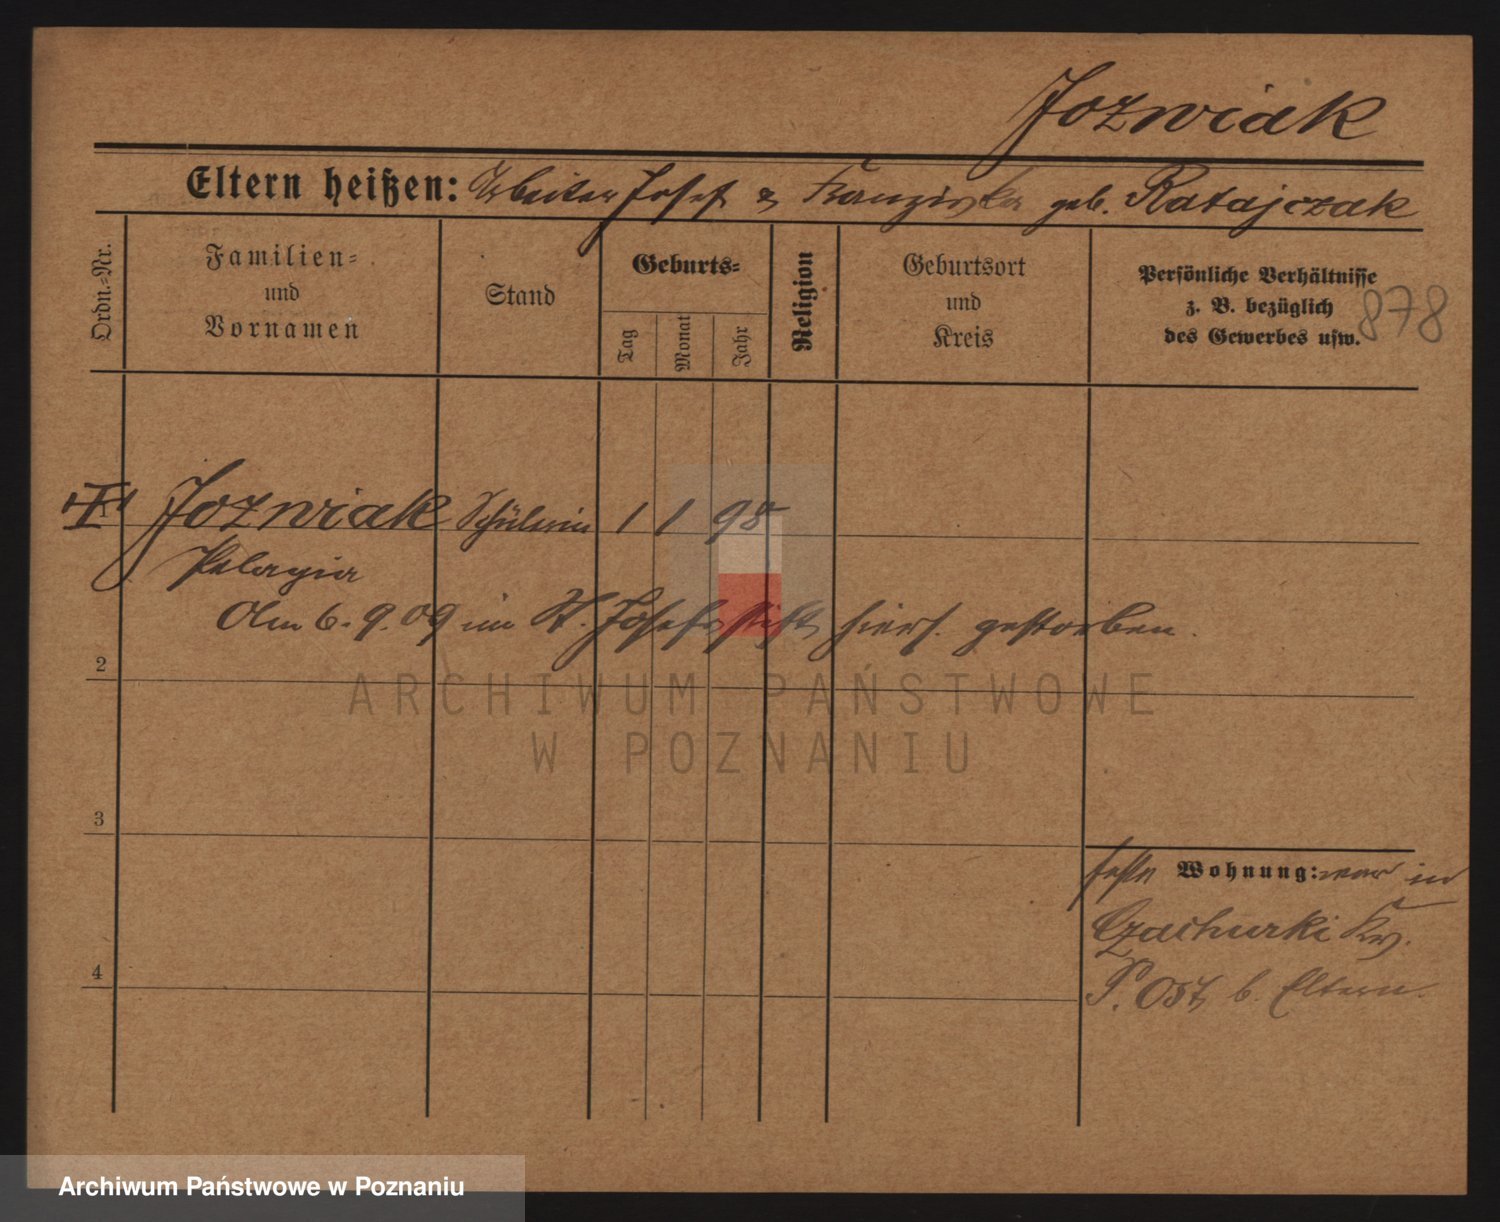 Jozwiak
Eltern heißen: Arbeiter Josef & Franziska geb. Ratajczak
Ordn.-Nr.
Familien-
und
Vornamen
Stand
Geburts-
Tag
Monat
Jahr
Religion
Geburtsort
und
Kreis
Persönliche Verhältnisse
z. B. bezüglich
des Gewerbes usw.
878
1 Jozwiak Schülerin 1 1 98
Pelagia
Am 6. 9. 09 im St. Josefsstift hiers. gestorben.
2
ARCHIWUM PAŃSTWOWE
W POZNANIU
3
feste Wohnung: war in
Czachurki Kr.
P. Ost b. Eltern.
4
Archiwum Państwowe w Poznaniu